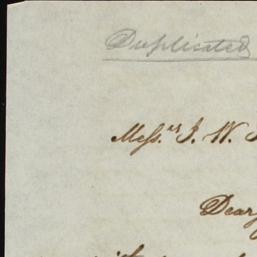 Duplicated
Mess.rs J. W.
Dear